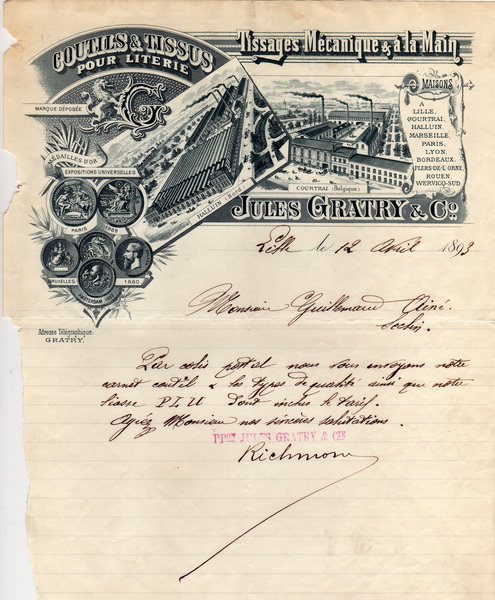 COUTILS & TISSUS
POUR LITERIE
Tissages Mécanique & à la Main
MARQUE DÉPOSÉE
G
MÉDAILLES D'OR
EXPOSITIONS UNIVERSELLES
PARIS 1889
BRUXELLES 1880
AMSTERDAM
HALLUIN (Nord)
COURTRAI (Belgique)
MAISONS
A
LILLE,
COURTRAI,
HALLUIN,
MARSEILLE,
PARIS,
LYON,
BORDEAUX,
FLERS-DE-L'ORNE
ROUEN,
WERVICQ-SUD
JULES GRATRY & Co.
Lille le 12 Avril 1893
Adresse Télégraphique:
GRATRY.
Monsieur Guillemaud Aîné.
Seclin.
Par colis postal nous vous envoyons notre
carnet coutil & les types de qualité ainsi que notre
liasse P.I.U dont inclus le tarif.
Agréez Monsieur nos sincères salutations.
PPon JULES GRATRY & CIE
Richmon